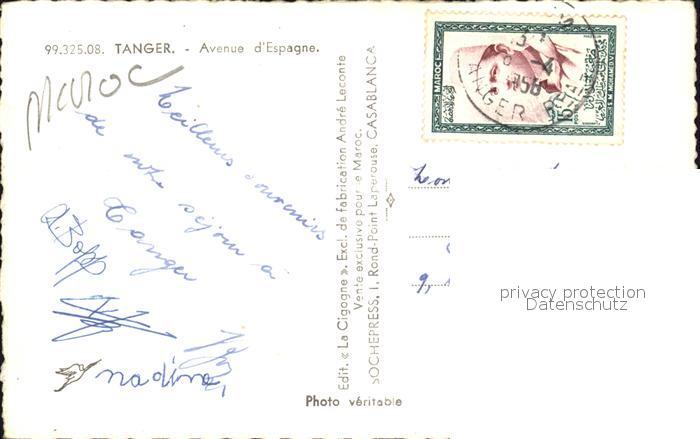 99.325.08. TANGER. - Avenue d'Espagne.
Maroc
Meilleurs souvenirs
de notre séjour à
Tanger
nadina
Edit. « La Cigogne ». Excl. de fabrication André Leconte
Vente exclusive pour le Maroc.
SOCHEPRESS, 1, Rond-Point Laperouse, CASABLANCA
Photo véritable
MAROC
15F
S.M. MOHAMED V
TANGER
9,
privacy protection
Datenschutz